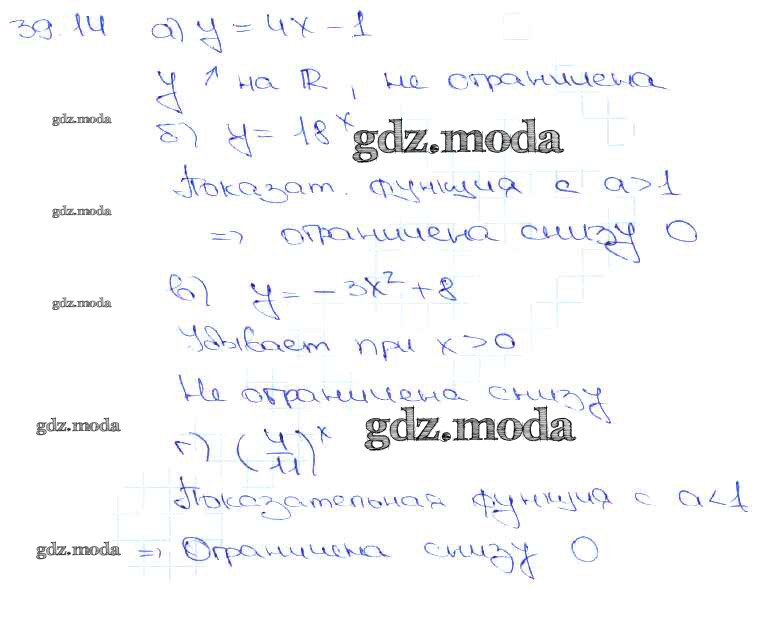 39.14 а) y = 4x − 1
y ↑ на ℝ, не ограничена
gdz.moda
б) y = 18^x
gdz.moda
Показат. функция с a>1
gdz.moda
=> ограничена снизу 0
в) y = −3x² + 8
gdz.moda
Убывает при x>0
Не ограничена снизу
gdz.moda
gdz.moda
г) (4/11)^x
Показательная функция с a<1
gdz.moda
=> Ограничена снизу 0